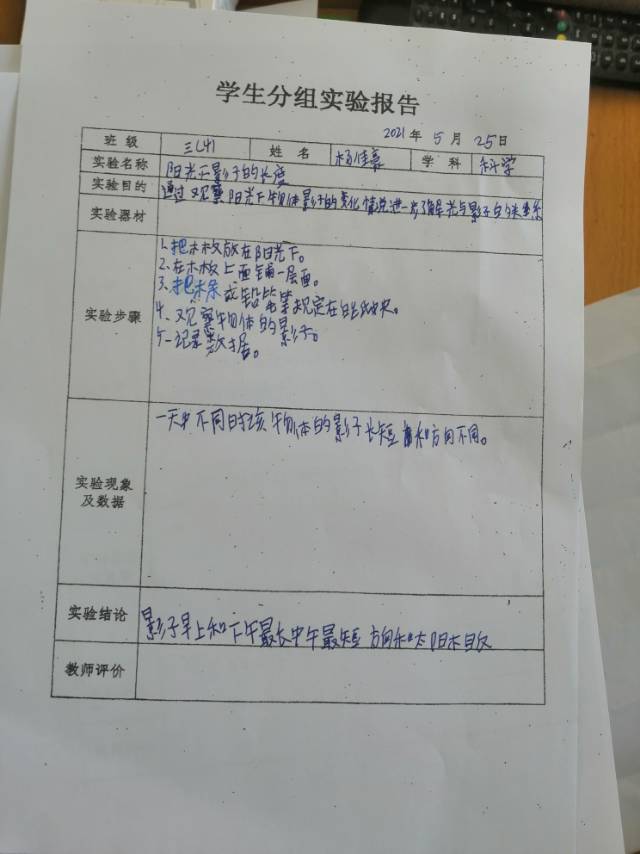 学生分组实验报告
2021年5月25日
班级 三(4) 姓名 杨佳 学科 科学
实验名称 阳光下影子的长度
实验目的 通过观察阳光下物体影子的变化情况进一步了解光与影子的关系
实验器材
1、把木板放在阳光下。
2、在木板上面铺一层面。
3、把木条或铅笔等规定在白纸中央。
实验步骤
4、观察物体的影子。
5、记录数据。
一天中不同时刻物体的影子长短和方向不同。
实验现象
及数据
实验结论 影子早上和下午最长中午最短方向和太阳木目反
教师评价